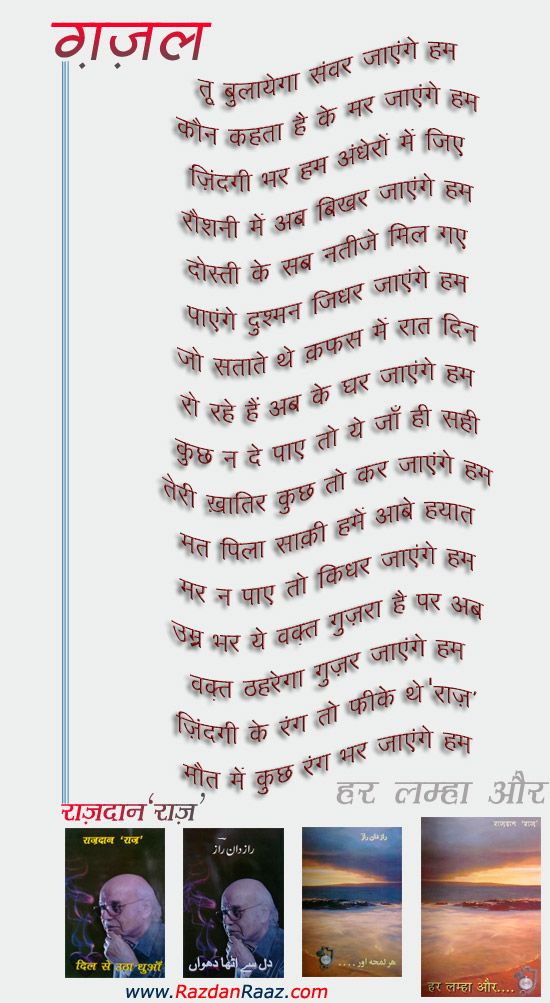 ग़ज़ल
तू बुलायेगा संवर जाएंगे हम
कौन कहता है के मर जाएंगे हम
ज़िंदगी भर हम अंधेरों में जिए
रौशनी में अब बिखर जाएंगे हम
दोस्ती के सब नतीजे मिल गए
पाएंगे दुश्मन जिधर जाएंगे हम
जो सताते थे क़फस में रात दिन
रो रहे हैं अब के घर जाएंगे हम
कुछ न दे पाए तो ये जाँ ही सही
तेरी ख़ातिर कुछ तो कर जाएंगे हम
मत पिला साक़ी हमें आबे हयात
मर न पाए तो किधर जाएंगे हम
उम्र भर ये वक़्त गुज़रा है पर अब
वक़्त ठहरेगा गुज़र जाएंगे हम
ज़िंदगी के रंग तो फीके थे 'राज़'
मौत में कुछ रंग भर जाएंगे हम
राज़दान 'राज़'
हर लम्हा और
राज़दान 'राज़'
दिल से उठा धुआँ
راز دان راز
دل سے اٹھا دھواں
راز دان راز
ہر لمحہ اور ....
राज़दान 'राज़'
हर लम्हा और....
www.RazdanRaaz.com